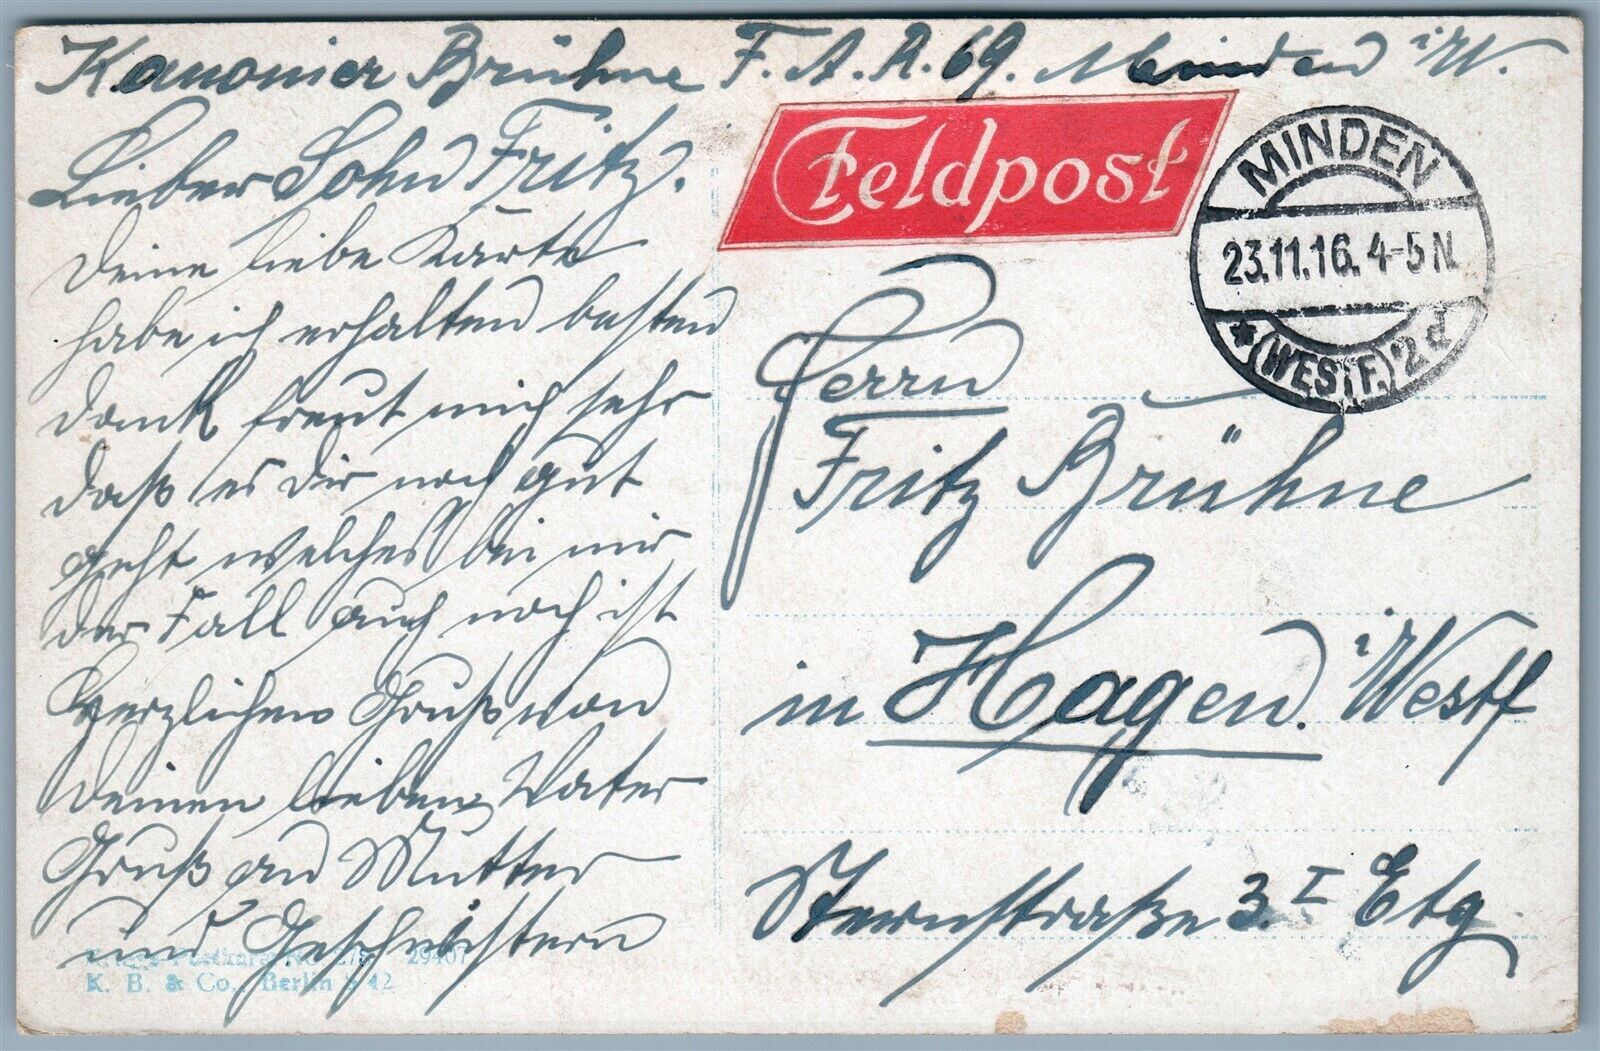 Kanonier Brühne F. A. R. 69. Minden i/W.
Lieber Sohn Fritz.
Deine liebe Karte
habe ich erhalten besten
Dank freut mich sehr
daß es dir noch gut
geht welches bei mir
der Fall auch noch ist
Herzlichen Gruß von
deinen lieben Vater
Gruß an Mutter
und Geschwistern
29407
K. B. & Co., Berlin S 42
Feldpost
MINDEN
23.11.16. 4-5 N.
* (WESTF.) 2 d
Herrn
Fritz Brühne
in Hagen. i/Westf
Sternstraße 3. I Etg